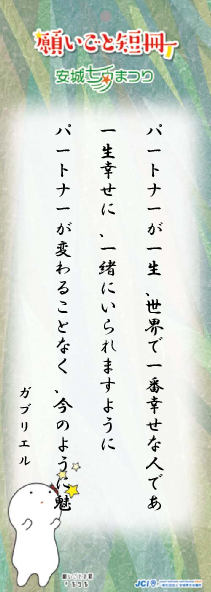 願いごと短冊
安城七夕まつり
パートナーが一生、世界で一番幸せな人であ
一生幸せに、一緒にいられますように
パートナーが変わることなく、今のように魅
ガブリエル
JCI